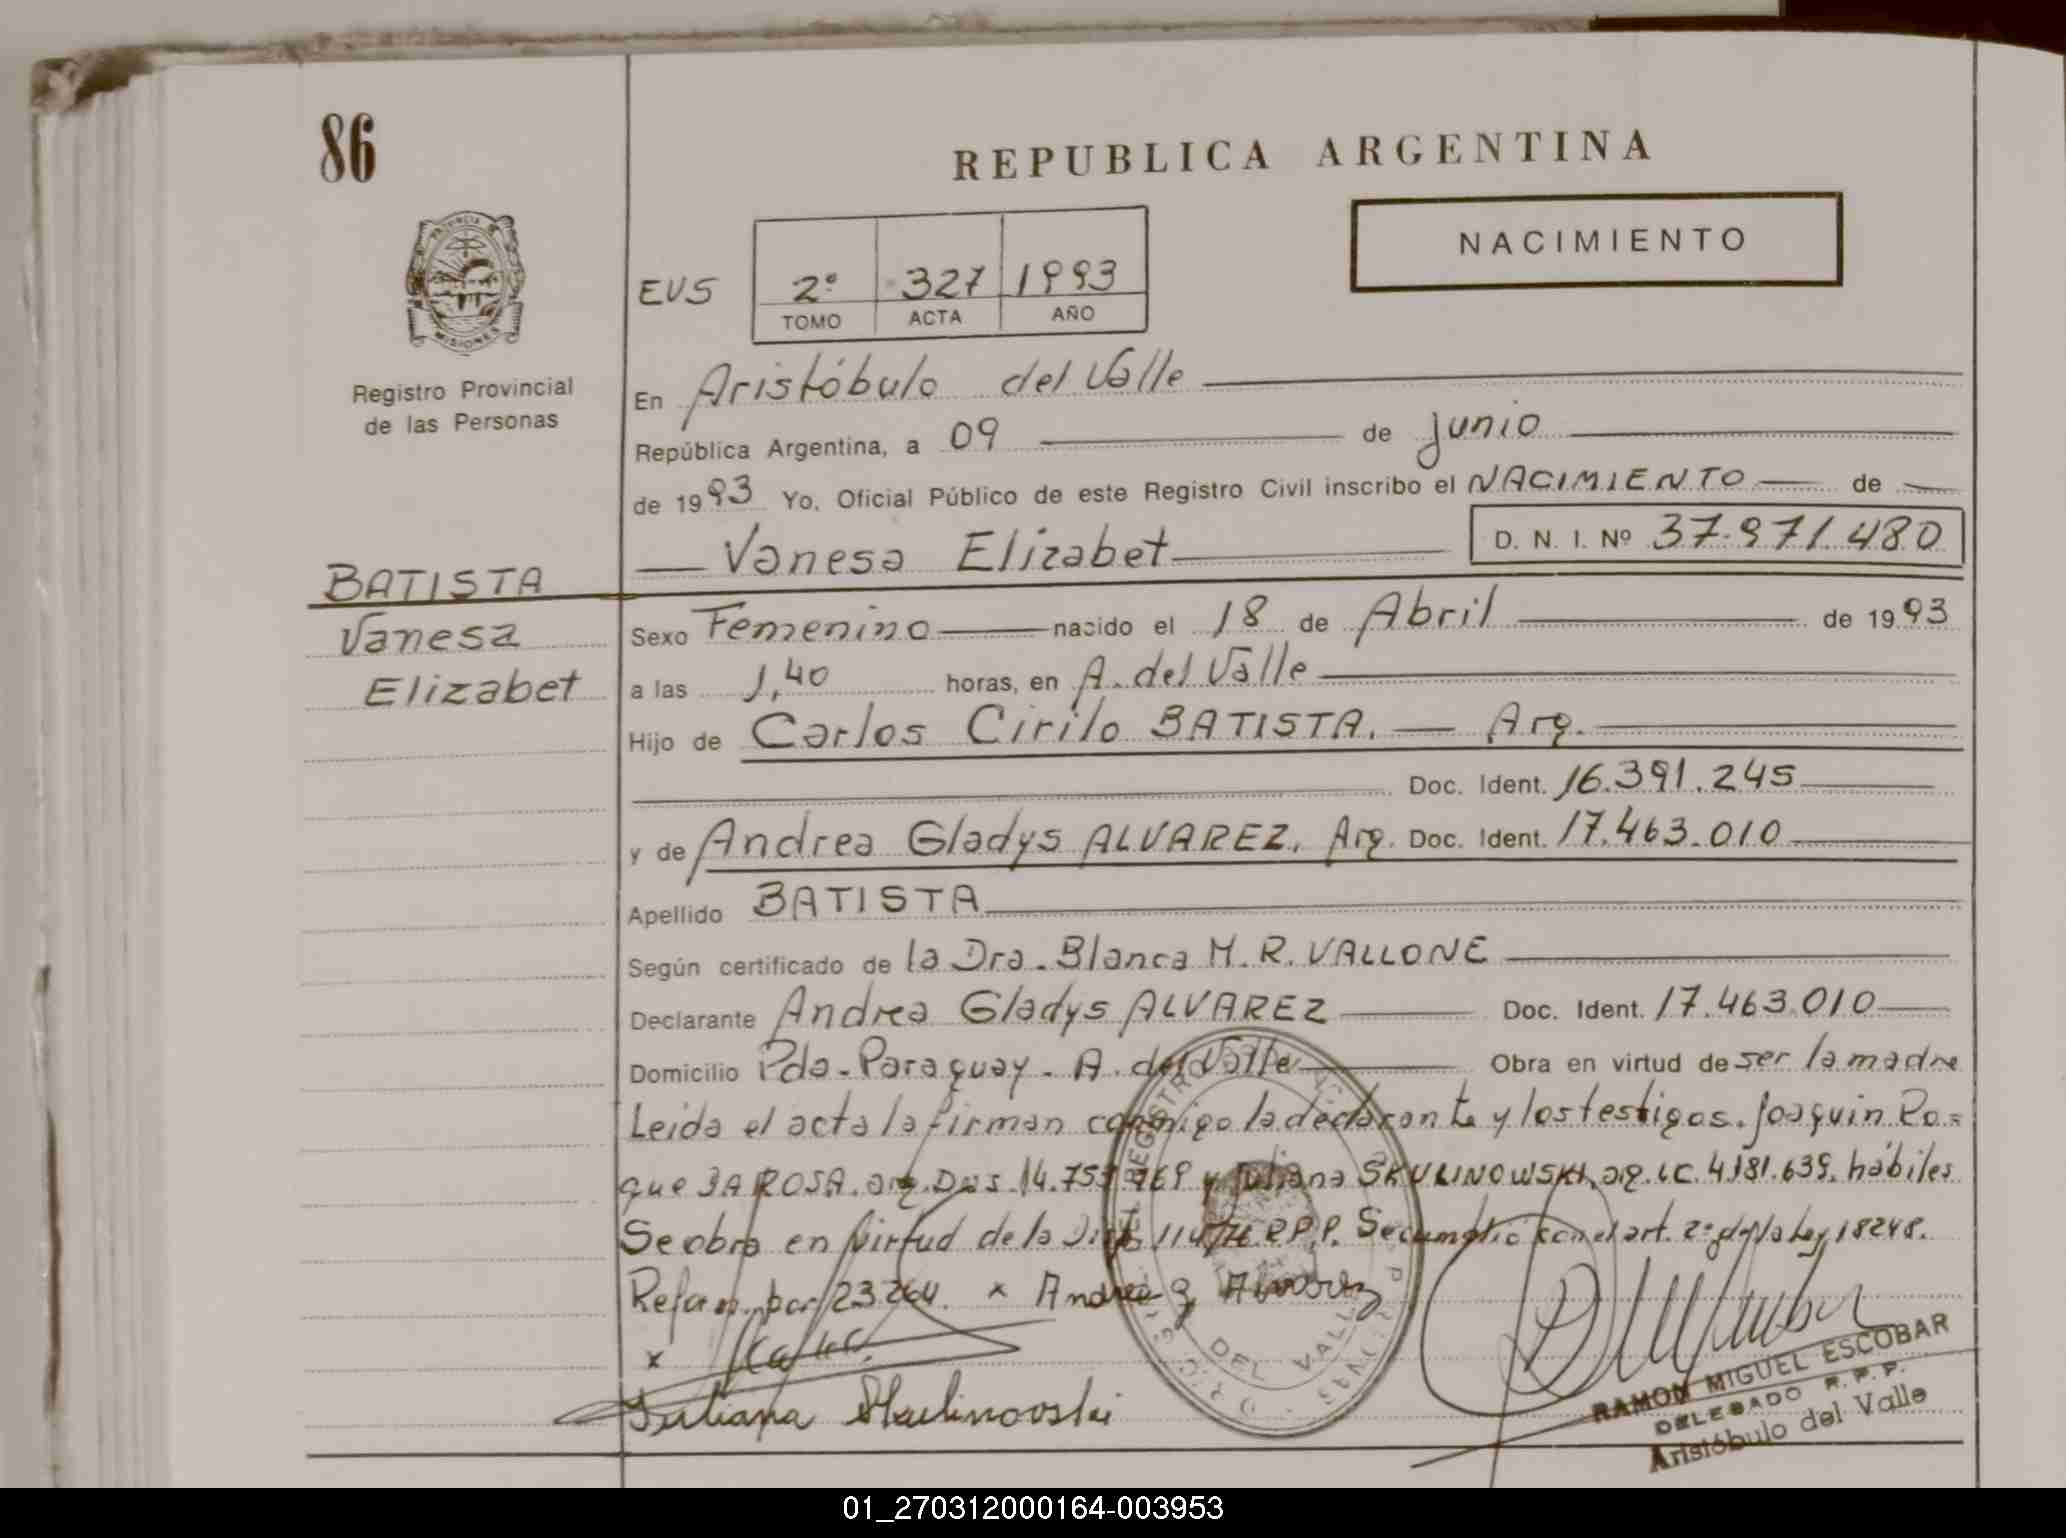 86
REPUBLICA ARGENTINA
NACIMIENTO
PROVINCIA DE MISIONES
Registro Provincial
de las Personas
EVS 2º 327 1993
TOMO ACTA AÑO
En Aristóbulo del Valle
República Argentina, a 09 de junio
de 1993 Yo, Oficial Público de este Registro Civil inscribo el NACIMIENTO de
Vanesa Elizabet D. N. I. Nº 37.971.480
BATISTA
Vanesa
Elizabet
Sexo Femenino nacido el 18 de Abril de 1993
a las 1,40 horas, en A. del Valle
Hijo de Carlos Cirilo BATISTA. Arg.
Doc. Ident. 16.391.245
y de Andrea Gladys ALVAREZ. Arg. Doc. Ident. 17.463.010
Apellido BATISTA
Según certificado de la Dra. Blanca M. R. VALLONE
Declarante Andrea Gladys ALVAREZ Doc. Ident. 17.463.010
Domicilio Pda. Paraguay. A. del Valle Obra en virtud de ser la madre
Leida el acta la firman conmigo la declarante y los testigos. Joaquin Ro=
que arg. y Juliana SKULINOWSKI, arg. LC. hábiles
Se obra en virtud de la R.P.P. Se cumplió con el art. 2º de la Ley 18248.
por 23264. x Andrea G Alvarez
x
Juliana Skulinovski
DEL VALLE
RAMON MIGUEL ESCOBAR
DELEGADO R. P. P.
Aristóbulo del Valle
01_270312000164-003953